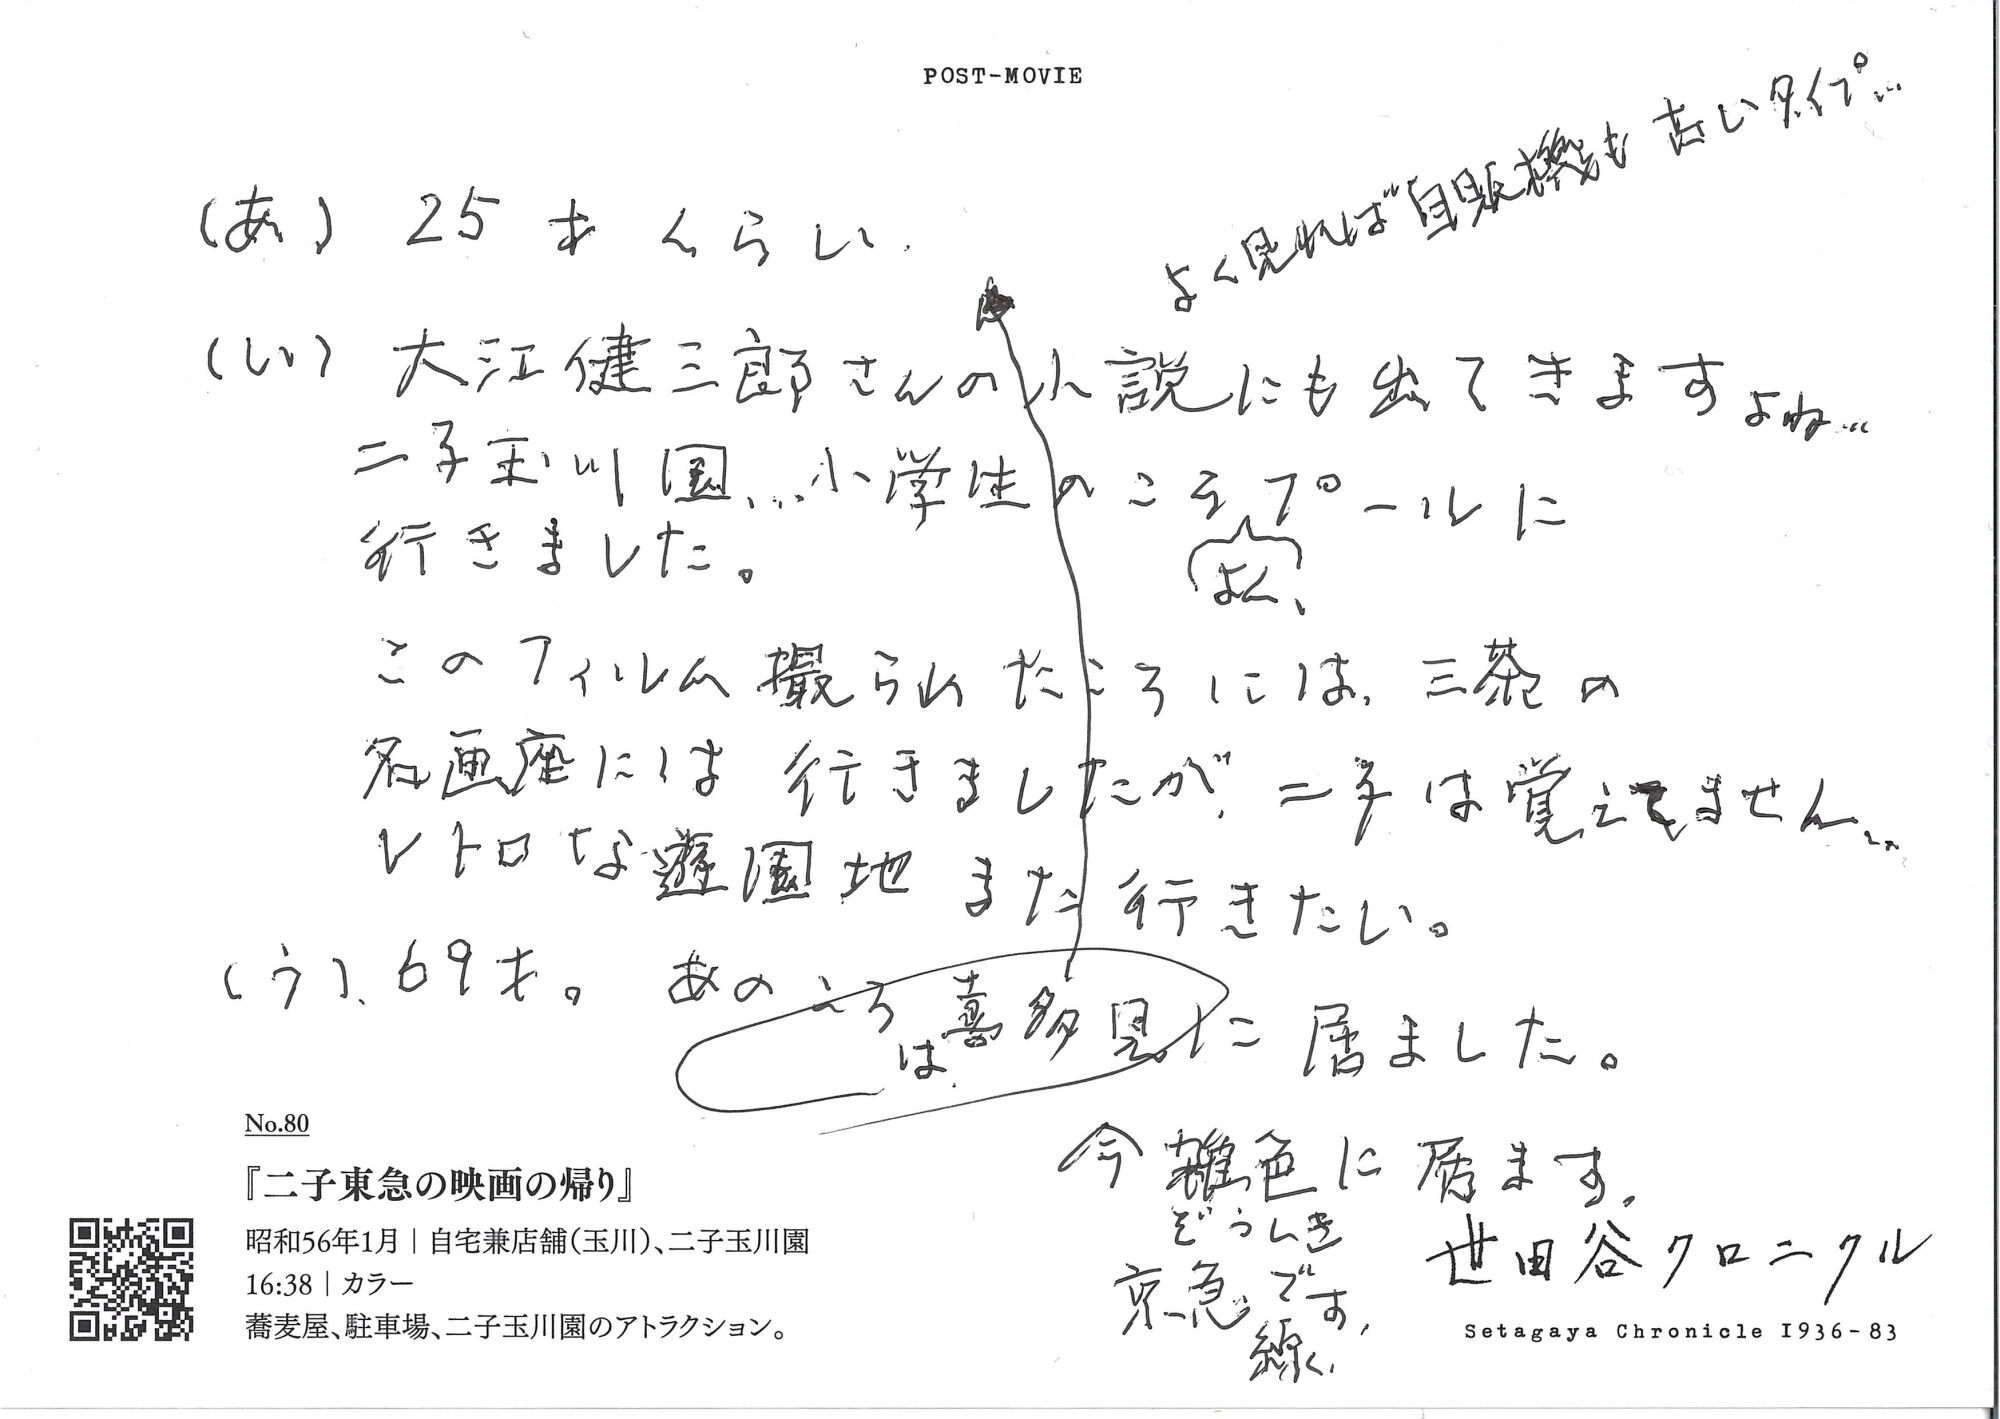 POST-MOVIE
よく見れば自販機も古いタイプ…
(あ) 25才くらい.
(い) 大江健三郎さんの小説にも出てきますよね…
二子玉川園…小学生のころプールに
よく、
行きました。
このフィルム撮られたころには、三茶の
名画座には行きましたが、二子は覚えてません…
レトロな遊園地また行きたい。
(う). 69才。あのころ
は喜多見に居ました。
今雑色に居ます。
ぞうしき
京急です。
線
No.80
『二子東急の映画の帰り』
昭和56年1月｜自宅兼店舗(玉川)、二子玉川園
16:38｜カラー
蕎麦屋、駐車場、二子玉川園のアトラクション。
世田谷クロニクル
Setagaya Chronicle 1936-83